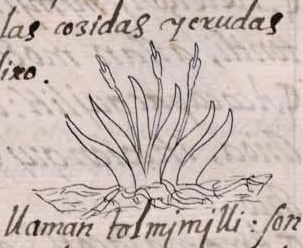 las cozidas y crudas
dixo.
llaman tolmimilli: son